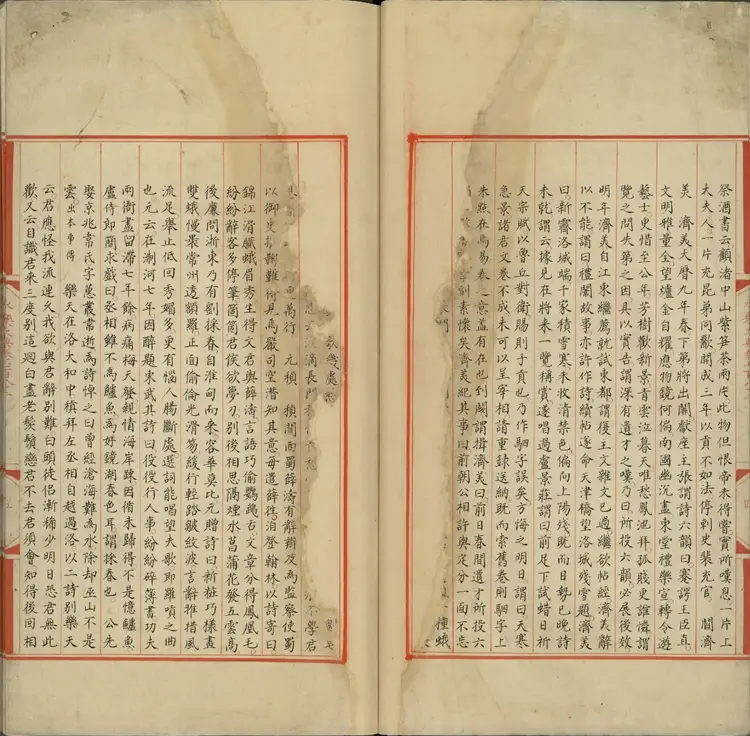 祭酒書云顧渚中山紫笋茶兩片此物但恨帝未得嘗實所嘆息一片上
太夫人一片充昆弟同歠開成三年以貢不如法停刺史裴充官　閻濟
美　濟美大曆九年春下第將出關獻座主張謂詩六韻曰謇諤王臣直
文明雅量全望爐金自耀應物鏡何偏南國幽沉盡東堂禮樂宣轉令遊
藝士更惜至公年芳樹歡新景青雲泣暮天唯愁鳳池拜孤賤更誰憐謂
覽之問失第之因具以實告謂深有遺才之嘆乃曰所投六韻必展後效
明年濟美自江東繼薦就試東都謂復王文雜文已過繼欲帖經濟美辭
以不能謂曰禮闈故事亦許作詩續帖遂命天津橋望洛城殘雪題濟美
曰新霽洛城端千家積雪寒未收清禁色偏向上陽殘既而日勢已晚詩
未就謂云據見在將來一覽稱賞遂唱過盧景莊謂曰前足下試蜡日祈
天宗賦以魯丘對衛賜則子貢也乃作駟字誤矣方悔之明日謂曰天寒
急景諸君文卷不成未可以呈宰相請重錄送納既而索舊卷則駟字上
朱點在焉易卷之意蓋有在也到闕謂揖濟美曰前日春間遺才所投六
素懷矣濟美紀其事曰前朝公相許與定分一面不忘
種蛾
幾處
滴長門
不學君
萬行　元稹　稹聞西蜀薛濤有辭辯及為監察使蜀
以御史推鞫難得見焉嚴司空潛知其意每遣薛往洎登翰林以詩寄曰
錦江滑膩蛾眉秀生得文君與薛濤言語巧偷鸚鵡舌文章分得鳳凰毛
紛紛辭客多停筆箇箇君侯欲夢刀別後相思隔煙水菖蒲花發五雲高
後廉問浙東乃有劉採春自淮甸而來容華莫比元贈詩曰新粧巧樣畫
雙蛾慢裹常州透額羅正面偷倫光滑笏緩行輕踏皺紋波言辭雅措風
流足舉止低回秀媚多更有惱人腸斷處選詞能唱望夫歌即羅嗊之曲
也元云在浙河七年因醉題東武其詩曰役役行人事紛紛碎簿書功夫
兩衙盡留滯七年餘病痛梅天發親情海岸疎因循未歸得不是憶鱸魚
盧侍御簡求戲曰丞相雖不為鱸魚為好鏡湖春色耳謂採春也　公先
娶京兆韋氏字蕙叢常逝為詩悼之曰曾經滄海難為水除却巫山不是
雲出本事傳　樂天在洛大和中稹拜左丞相自越過洛以二詩別樂天
云君應怪我流連久我欲與君辭別難白頭徒侶漸稀少明日恐君無此
歡又云自識君來三度別這迴白盡老髭鬚戀君不去君須會知得後回相